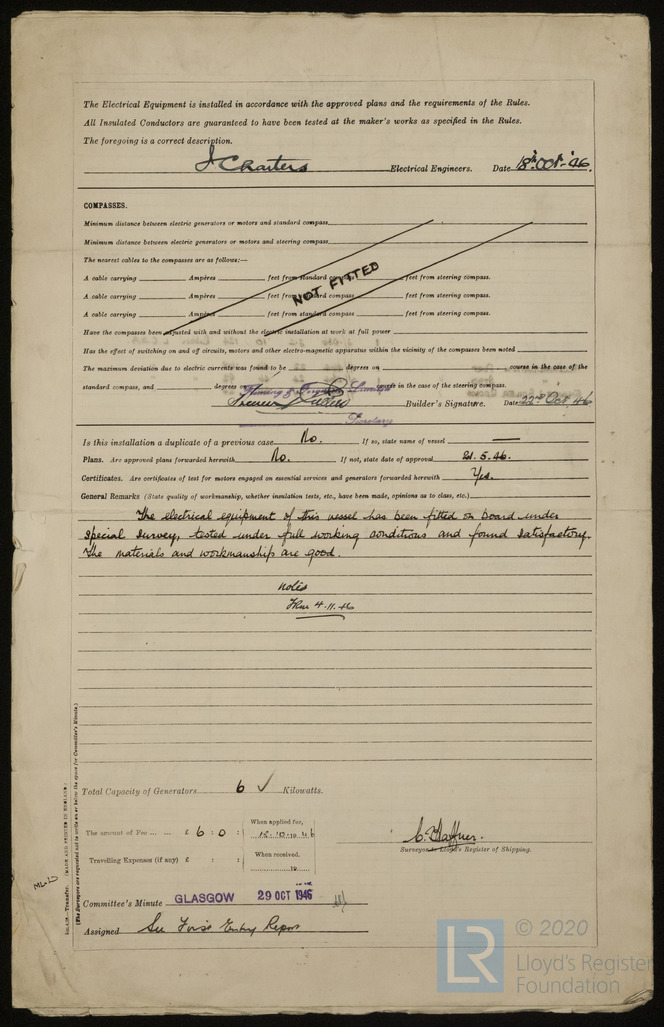 The Electrical Equipment is installed in accordance with the approved plans and the requirements of the Rules.
All Insulated Conductors are guaranteed to have been tested at the maker's works as specified in the Rules.
The foregoing is a correct description.
J Charters Electrical Engineers. Date 18th Oct. '46.
COMPASSES.
Minimum distance between electric generators or motors and standard compass
Minimum distance between electric generators or motors and steering compass
The nearest cables to the compasses are as follows:—
A cable carrying Ampères feet from standard compass feet from steering compass.
A cable carrying Ampères feet from standard compass feet from steering compass.
A cable carrying Ampères feet from standard compass feet from steering compass.
NOT FITTED
Have the compasses been adjusted with and without the electric installation at work at full power
Has the effect of switching on and off circuits, motors and other electro-magnetic apparatus within the vicinity of the compasses been noted
The maximum deviation due to electric currents was found to be degrees on course in the case of the
standard compass, and degrees on course in the case of the steering compass.
Builder's Signature. Date 22nd Oct. 46
Secretary
Is this installation a duplicate of a previous case No. If so, state name of vessel —
Plans. Are approved plans forwarded herewith No. If not, state date of approval 21.5.46.
Certificates. Are certificates of test for motors engaged on essential services and generators forwarded herewith Yes.
General Remarks (State quality of workmanship, whether insulation tests, etc., have been made, opinions as to class, etc.)
The electrical equipment of this vessel has been fitted on board under
special survey, tested under full working conditions and found satisfactory.
The materials and workmanship are good.
noted
4.11.46
Total Capacity of Generators 6 ✓ Kilowatts.
The amount of Fee ... ... £ 6 : 0 :
When applied for,
15.10.1946
Travelling Expenses (if any) £ : :
When received,
19
Surveyor to Lloyd's Register of Shipping.
Committee's Minute GLASGOW 29 OCT 1946
Assigned See First Entry Report
(MADE AND PRINTED IN ENGLAND.)
(The Surveyors are requested not to write on or below the space for Committee's Minute.)
© 2020
LR
Lloyd's Register
Foundation